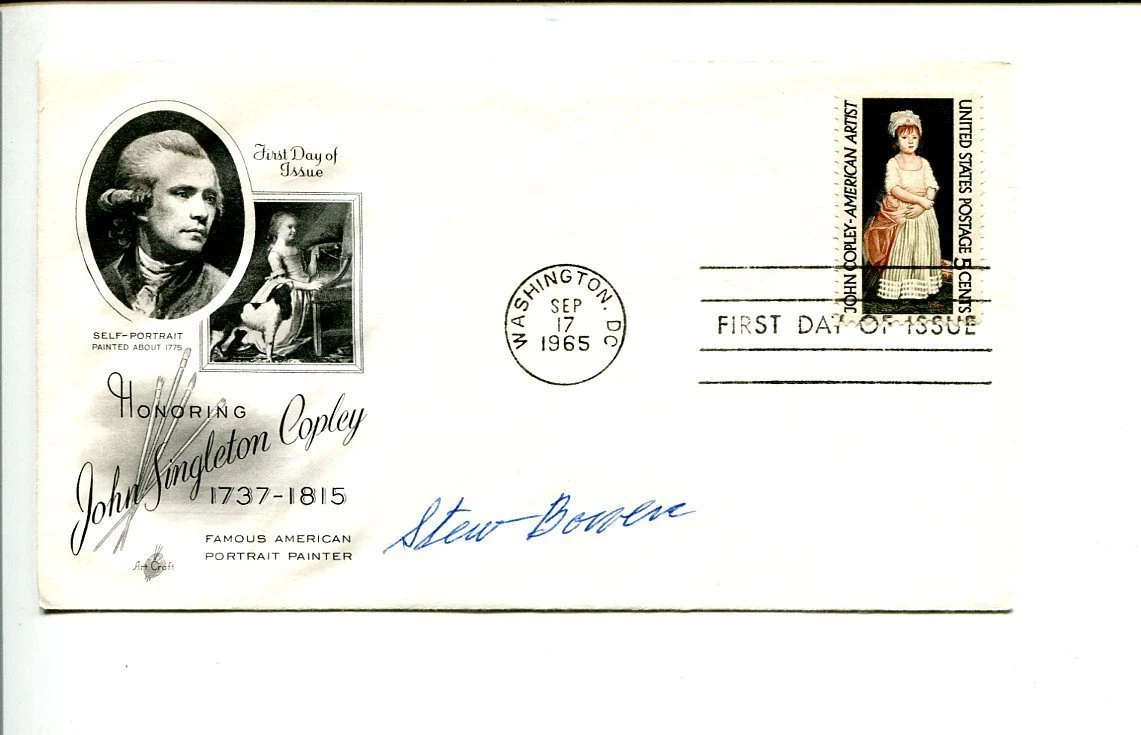 First Day of
Issue
SELF-PORTRAIT
PAINTED ABOUT 1775
HONORING
John Singleton Copley
1737-1815
FAMOUS AMERICAN
PORTRAIT PAINTER
Art Craft
WASHINGTON. DC
SEP
17
1965
JOHN COPLEY-AMERICAN ARTIST
UNITED STATES POSTAGE 5 CENTS
FIRST DAY OF ISSUE
Stew Bowen